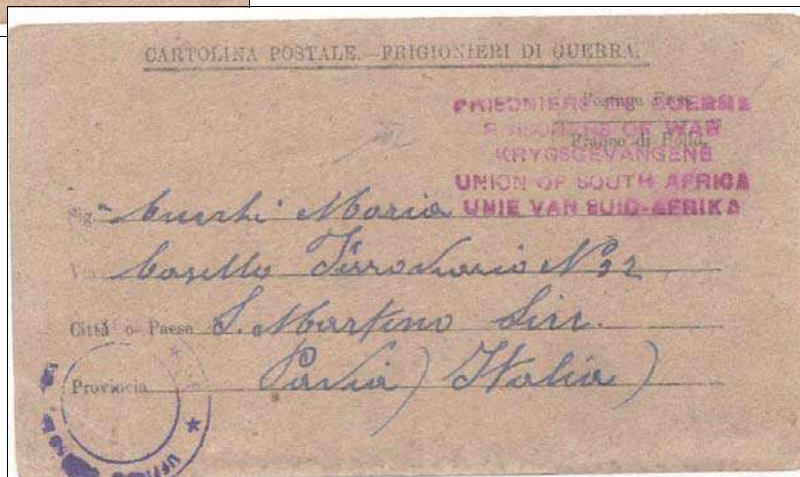 CARTOLINA POSTALE.—PRIGIONIERI DI GUERRA.
Postage Free
Franco di Bollo.
PRISONIERS DE GUERRE
PRISONERS OF WAR
KRYGSGEVANGENE
UNION OF SOUTH AFRICA
UNIE VAN SUID-AFRIKA
Sig. Maria
Via Casello Ferroviario N° 32
Città o Paese S. Martino Sicc.
Provincia Pavia) Italia)
UFFICIO